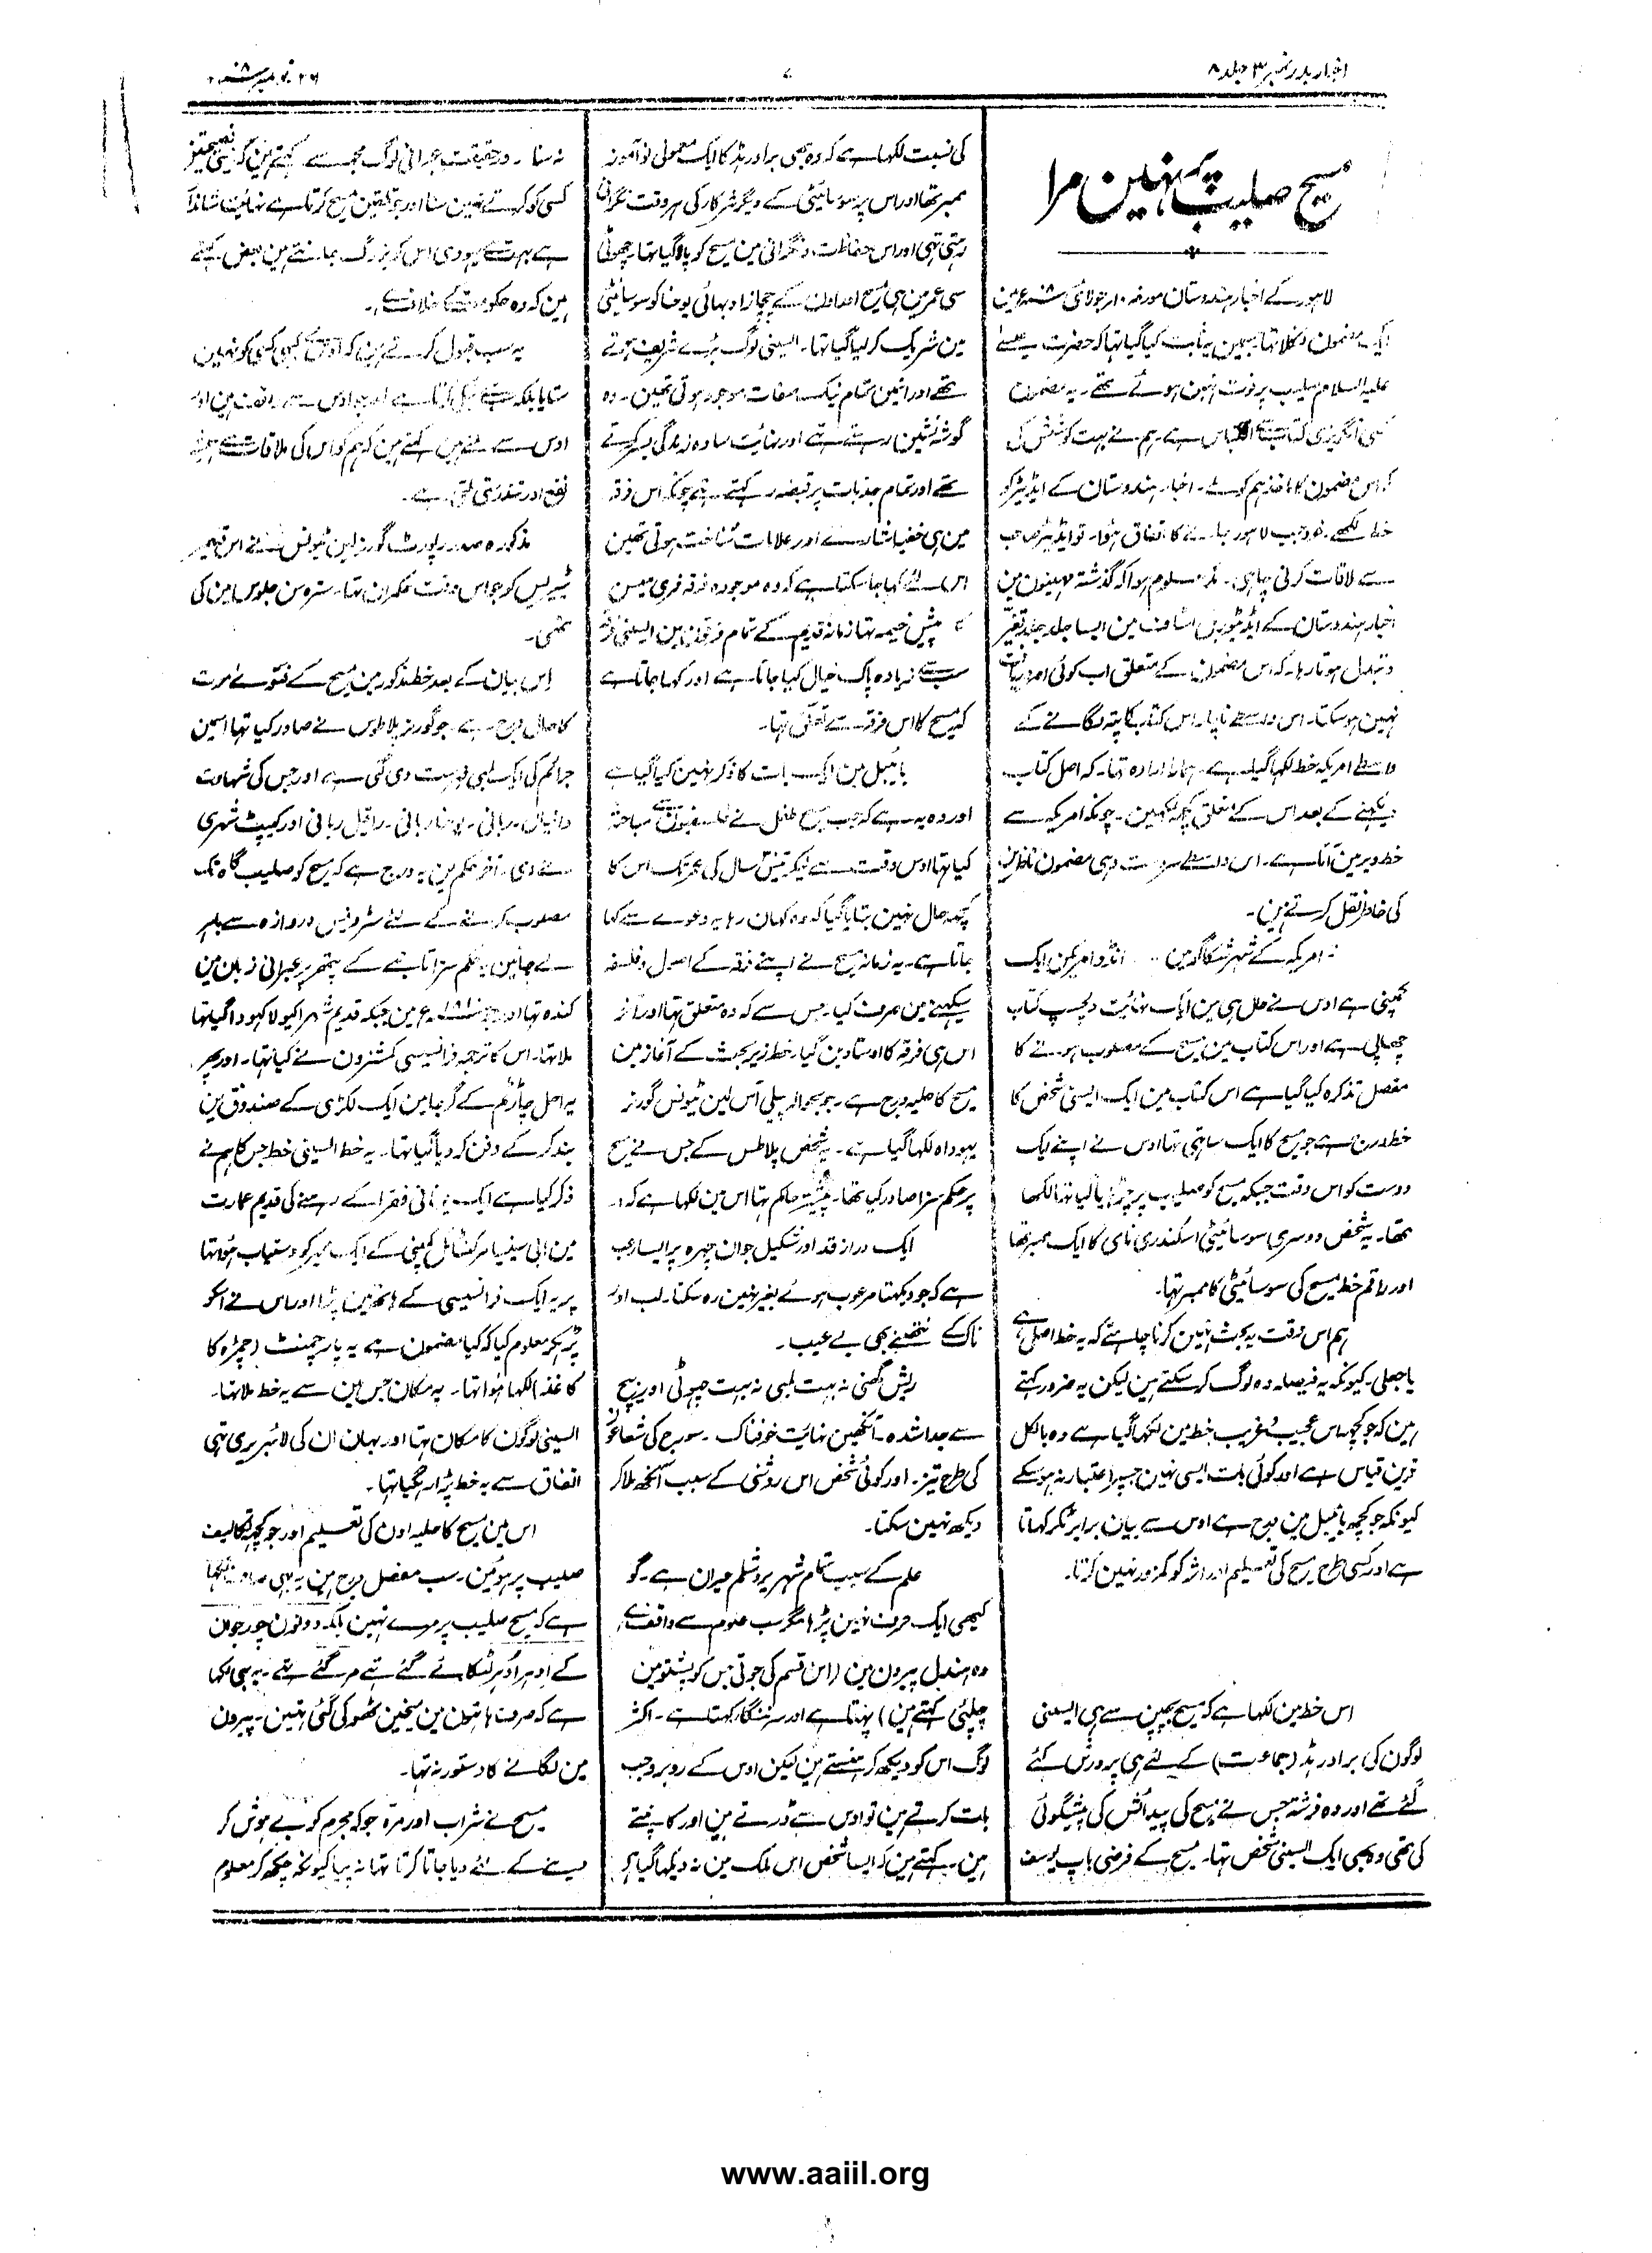 اخبار بدر نمبر ۳ جلد ۸
۷
۲۶ نومبر سنہ ۰۸ء
مسیح صلیب پر نہین مرا
لاہور کے اخبار ہندوستان مورخہ ۱۰ جولائی سنہ ۰۸ء مین
ایک مضمون نکلا تھا جسمین یہ ثابت کیا گیا تھا کہ حضرت عیسےٰ
علیہ السلام صلیب پر فوت نہین ہوئے تھے۔ یہ مضمون
کسی انگریزی کتاب سے اقتباس ہے۔ ہم نے بہت کوشش کی
کہ اس مضمون کا ماخذ ہم کو ملے۔ اخبار ہندوستان کے ایڈیٹر کو
خط لکھے۔ جب لاہور جانے کا اتفاق ہوا۔ تو ایڈیٹر صاحب
سے ملاقات کرنی چاہی۔ مگر معلوم ہوا کہ گذشتہ مہینون مین
اخبار ہندوستان کے ایڈیٹوریل اسٹاف مین ایسا جلد جلد تغیّر
و تبدل ہوتا رہا۔ کہ اس مضمون کے متعلق اب کوئی امر دریافت
نہین ہو سکتا۔ اس واسطے ناچار اس کتاب کا پتہ لگانے کے
واسطے امریکہ خط لکھا گیا ہے۔ ہمارا ارادہ تھا۔ کہ اصل کتاب
دیکھنے کے بعد اس کے متعلق کچھ لکھین۔ چونکہ امریکہ سے
خط دیر مین آتا ہے۔ اس واسطے سردست وہی مضمون ناظرین
کی خاطر نقل کرتے ہین۔
امریکہ کے شہر شکاگو مین انڈو امریکن ایک
کمپنی ہے اوس نے حال ہی مین ایک نہایت دلچسپ کتاب
چھاپی ہے اور اس کتاب مین مسیح کے مصلوب ہونے کا
مفصل تذکرہ کیا گیا ہے اس کتاب مین ایک ایسنی شخص کا
خط درج ہے جو مسیح کا ایک ساتھی تھا اوس نے اپنے ایک
دوست کو اس وقت جبکہ مسیح کو صلیب پر چڑھایا گیا تھا لکھا
تھا۔ یہ شخص دوسری سوسائیٹی اسکندری نامی کا ایک ممبر تھا
اور راقم خط مسیح کی سوسائیٹی کا ممبر تھا۔
ہم اس وقت یہ بحث نہین کرنا چاہتے کہ یہ خط اصلی ہے
یا جعلی۔ کیونکہ یہ فیصلہ وہ لوگ کر سکتے ہین لیکن یہ ضرور کہتے
ہین کہ جو کچھ اس عجیب و غریب خط مین لکھا گیا ہے وہ بالکل
قرین قیاس ہے اور کوئی بات ایسی نہین جسپر اعتبار نہ ہو سکے
کیونکہ جو کچھ بائیبل مین درج ہے اوس سے بیان برابر ٹکر کھاتا
ہے اور کسی طرح مسیح کی تعلیم اور اثر کو کمزور نہین کرتا۔
اس خط مین لکھا ہے کہ مسیح بچپن سے ہی ایسنی
لوگون کی برادرہڈ (جماعت) کے لئے ہی پرورش کئے
گئے تھے اور وہ فرشتہ جس نے مسیح کی پیدائش کی پیشگوئی
کی تھی وہ بھی ایک ایسنی شخص تھا۔ مسیح کے فرضی باپ یوسف
کی نسبت لکھا ہے کہ وہ بھی برادرہڈ کا ایک معمولی نو آموز
ممبر تھا اور اس پر سوسائیٹی کے دیگر شرکار کی ہر وقت نگرانی
رہتی تھی اور اس حفاظت و نگرانی مین مسیح کو پالا گیا تھا۔ چھوٹی
سی عمر مین ہی مسیح اور اون کے چچازاد بھائی یوحنا کو سوسائیٹی
مین شریک کر لیا گیا تھا۔ ایسنی لوگ بڑے شریف ہوتے
تھے اور انمین تمام نیک صفات موجود ہوتی تھین۔ وہ
گوشہ نشین رہتے تھے اور نہایت سادہ زندگی بسر کرتے
تھے اور تمام جذبات پر قبضہ رکھتے تھے چونکہ اس فرقہ
مین ہی خفیہ اشارے اور علامات شناخت ہوتی تھین
اس لئے کہا جا سکتا ہے کہ وہ موجودہ فرقہ فری میسن
کا پیش خیمہ تھا زمانہ قدیم کے تمام فرقون مین ایسنی فرقہ
سب سے زیادہ پاک خیال کیا جاتا ہے اور کہا جاتا ہے
کہ مسیح کا اس فرقہ سے تعلق تھا۔
بائیبل مین ایک بات کا ذکر نہین کیا گیا ہے
اور وہ یہ ہے کہ جب مسیح طفل نے فلسفیون سے مباحثہ
کیا تھا اوس وقت سے لیکر تیس سال کی عمر تک اس کا
کچھ حال نہین بتایا گیا کہ وہ کہان رہا یہ دعوے سے کہا
جاتا ہے۔ یہ زمانہ مسیح نے اپنے فرقہ کے اصول و فلسفہ
سیکھنے مین صرف کیا۔ جس سے کہ وہ متعلق تھا اور آخر
اس ہی فرقہ کا اوستاد بن گیا۔ خط زیر بحث کے آغاز مین
مسیح کا حلیہ درج ہے جو بحوالہ پبلی آس لین ٹیونس گورنر
یہوداہ لکھا گیا ہے۔ یہ شخص پلاطس کے جس نے مسیح
پر حکم سزا صادر کیا تھا۔ پیشتر حاکم تھا اس مین لکھا ہے کہ:۔
ایک دراز قد اور شکیل جوان چہرہ پر ایسا رعب
ہے کہ جو دیکھتا مرعوب ہوئے بغیر نہین رہ سکتا۔ لب اور
ناک کے نتھنے بھی بے عیب۔
ریش گھنی نہ بہت لمبی نہ بہت چھوٹی اور بیچ
سے جدا شدہ۔ آنکھین نہایت خوفناک۔ سورج کی شعاعون
کی طرح تیز۔ اور کوئی شخص اس روشنی کے سبب آنکھ ملا کر
دیکھ نہین سکتا۔
علم کے سبب تمام شہر یروشلم حیران ہے۔ گو
کبھی ایک حرف نہین پڑھا مگر سب علوم سے واقف ہے
وہ ہندل پیرون مین (اس قسم کی جوتی جس کو پشتو مین
چپلئی کہتے ہین) پہنتا ہے اور سر ننگا رکھتا ہے۔ اکثر
لوگ اس کو دیکھ کر ہنستے ہین لیکن اوس کے روبرو جب
بات کرتے ہین تو اوس سے ڈرتے ہین اور کانپتے
ہین۔ کہتے ہین کہ ایسا شخص اس ملک مین نہ دیکھا گیا
نہ سنا۔ درحقیقت عبرانی لوگ مجھ سے کہتے ہین کہ ایسی نصیحتین
کسی کو کرتے نہین سنا اور جو تلقین مسیح کرتا ہے نہایت شاندار
ہے بہت سے یہودی اس کو بزرگ مانتے ہین بعض کہتے
ہین کہ وہ حکومت کے خلاف ہے۔
یہ سب قبول کرتے ہین کہ اوس نے کبھی کسی کو نہین
ستایا بلکہ اور جو اوس سے واقف ہین اور
اوس سے ملتے ہین کہتے ہین کہ ہم کو اس کی ملاقات سے ہمیشہ
نفع اور تندرستی ملتی ہے۔
مذکورہ صدر رپورٹ گورنر لین ٹیونس نے اس قیصر
ٹیبریس کو جو اس وقت حکمران تھا۔ سترہ سن جلوس مین کی
تھی۔
اِس بیان کے بعد خط مذکور مین مسیح کے فتوےٰ موت
کا حال درج ہے۔ جو گورنر پلاطوس نے صادر کیا تھا اسمین
جرائم کی ایک لمبی فہرست دی گئی ہے اور جس کی شہادت
دانیال۔ ربانی۔ یوحنا ربانی۔ رافیل ربانی اور کیپٹ شہری
نے دی۔ آخر حکم مین یہ درج ہے کہ مسیح کو صلیب گاہ تک
مصلوب کرنے کے لئے سٹرونیس دروازہ سے باہر
لے جائین۔ یہ حکم سزا تانبے کے پتھر پر عبرانی زبان مین
کندہ تھا اور جو مین جبکہ قدیم شہر اکیولا کھودا گیا تھا
ملا تھا۔ اس کا ترجمہ فرانسیسی کمشنرون نے کیا تھا۔ اور پھر
یہ اصل چارٹم کے گرجا مین ایک لکڑی کے صندوق مین
بند کر کے دفن کر دیا گیا تھا۔ یہ خط ایسنی خط جس کا ہم نے
ذکر کیا ہے ایک یونانی فقرا کے رہنے کی قدیم عمارت
مین ابی سینیا مرکنٹائل کمپنی کے ایک ممبر کو دستیاب ہوا تھا
پر یہ ایک فرانسیسی کے ہاتھ مین پڑا اور اس نے اسکو
پڑھکر معلوم کیا کہ کیا مضمون ہے یہ پارچمنٹ (چمڑہ کا
کاغذ) لکھا ہوا تھا۔ یہ مکان جس مین سے یہ خط ملا تھا۔
ایسنی لوگون کا مکان تھا اور یہان ان کی لائبریری تھی
اتفاق سے یہ خط پڑا رہ گیا تھا۔
اس مین مسیح کا حلیہ اون کی تعلیم اور جو کچھ تکالیف
صلیب پر ہوئین۔ سب مفصل درج ہین یہ بھی صاف لکھا
ہے کہ مسیح صلیب پر مرے نہین بلکہ دونون چور جو ان
کے اِدہر اُدہر لٹکائے گئے تھے مر گئے تھے۔ یہ بھی لکھا
ہے کہ صرف ہاتھون مین میخین ٹھوکی گئی تھین۔ پیرون
مین لگانے کا دستور نہ تھا۔
مسیح نے شراب اور مرہ جو کہ مجرم کو بے ہوش کر
دینے کے لئے دیا جاتا کرتا تھا نہ پیا کیونکہ چکھ کر معلوم
www.aaiil.org